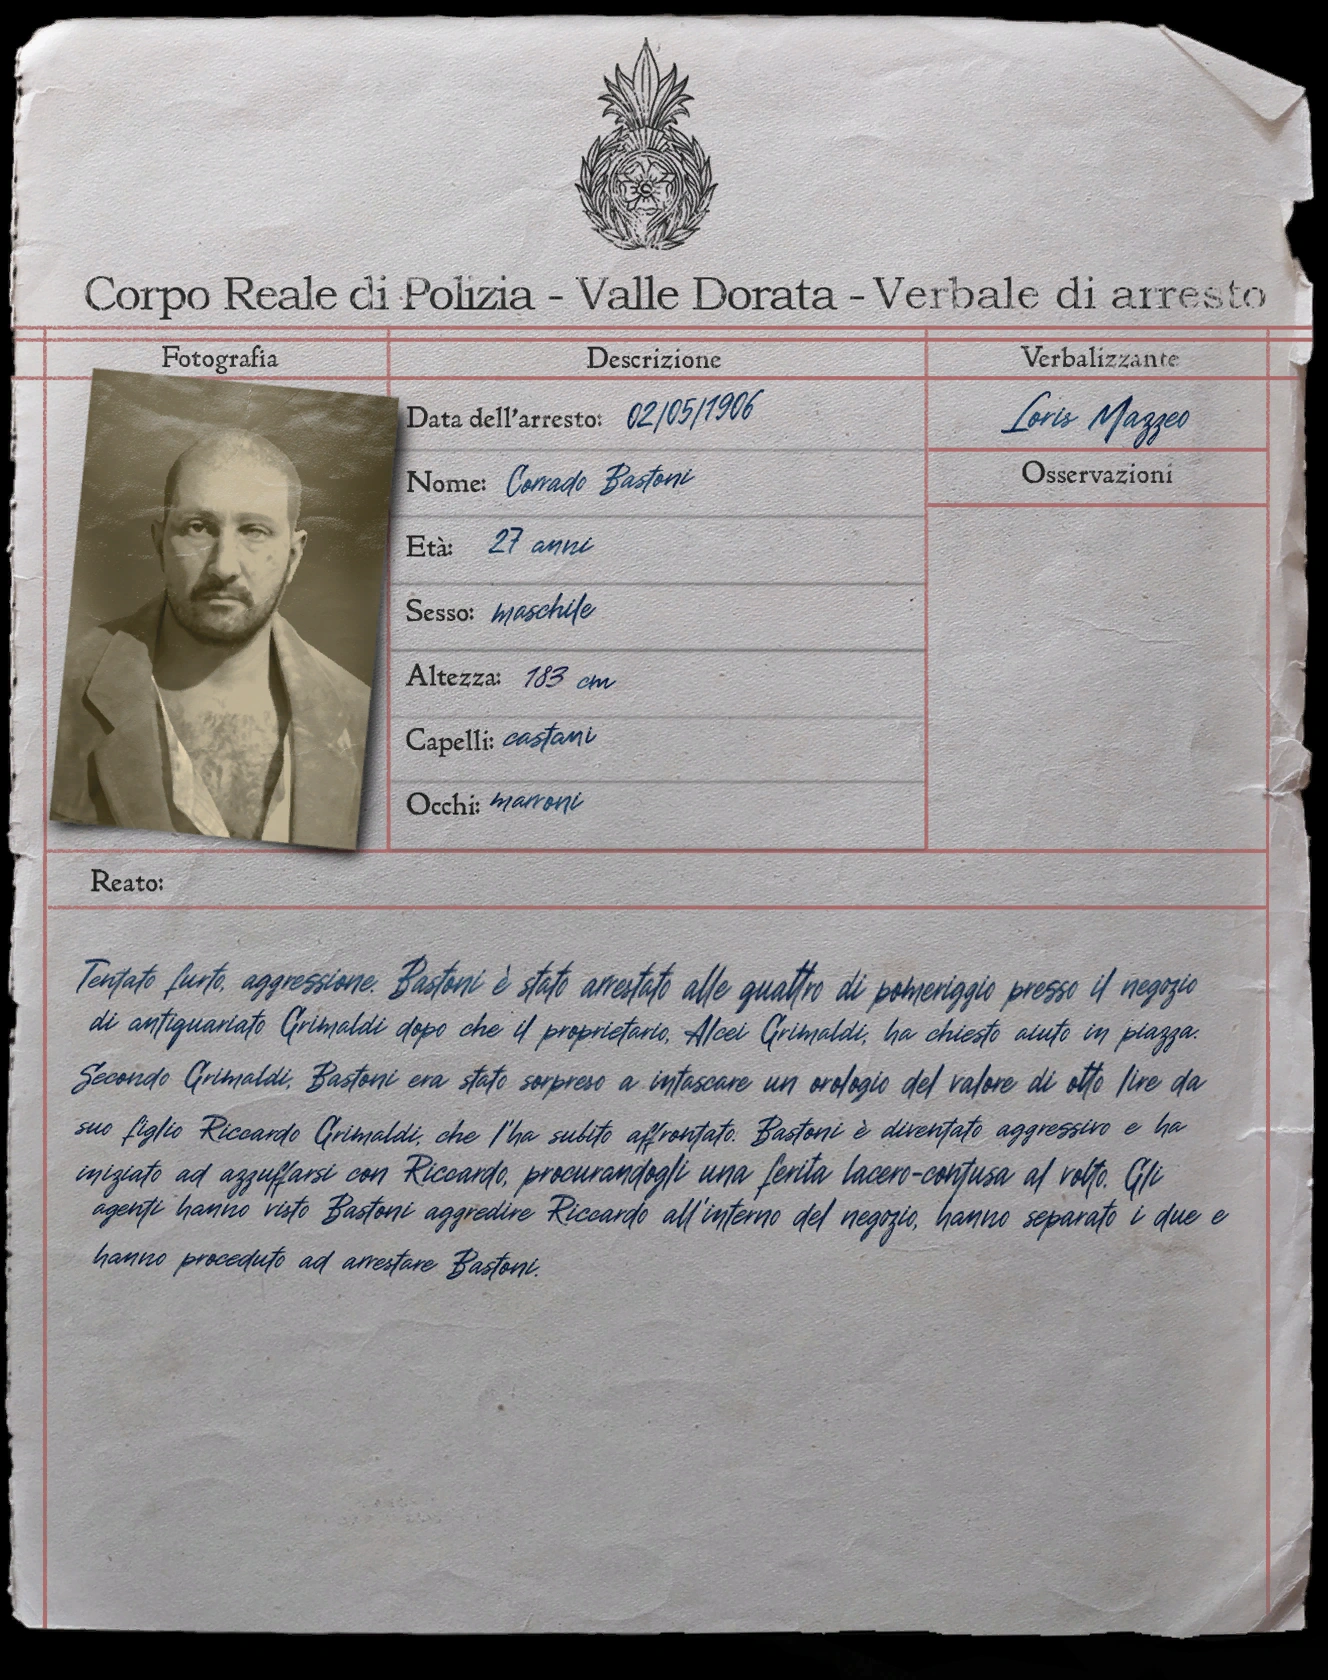 Corpo Reale di Polizia - Valle Dorata - Verbale di arresto
Fotografia
Descrizione
Verbalizzante
Data dell'arresto: 02/05/1906
Loris Mazzeo
Nome: Corrado Bastoni
Osservazioni
Età: 27 anni
Sesso: maschile
Altezza: 183 cm
Capelli: castani
Occhi: marroni
Reato:
Tentato furto, aggressione. Bastoni è stato arrestato alle quattro di pomeriggio presso il negozio
di antiquariato Grimaldi dopo che il proprietario, Alcei Grimaldi, ha chiesto aiuto in piazza.
Secondo Grimaldi, Bastoni era stato sorpreso a intascare un orologio del valore di otto lire da
suo figlio Riccardo Grimaldi, che l'ha subito affrontato. Bastoni è diventato aggressivo e ha
iniziato ad azzuffarsi con Riccardo, procurandogli una ferita lacero-contusa al volto. Gli
agenti hanno visto Bastoni aggredire Riccardo all'interno del negozio, hanno separato i due e
hanno proceduto ad arrestare Bastoni.